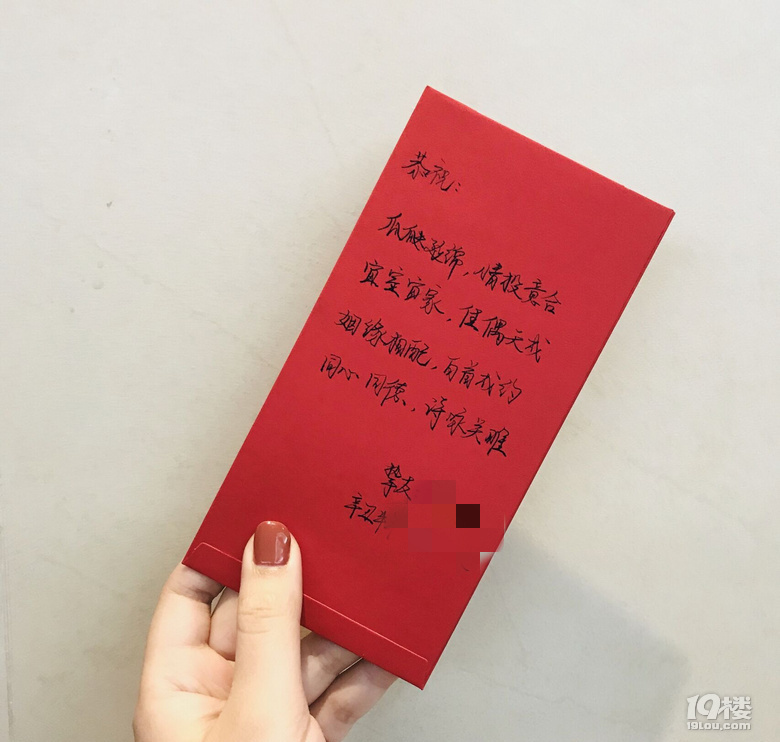 恭祝:
瓜瓞延绵,情投意合
宜室宜家,佳偶天成
姻缘相配,白首成约
同心同德,诗咏关雎
挚友
辛丑年
19楼
19lou.com